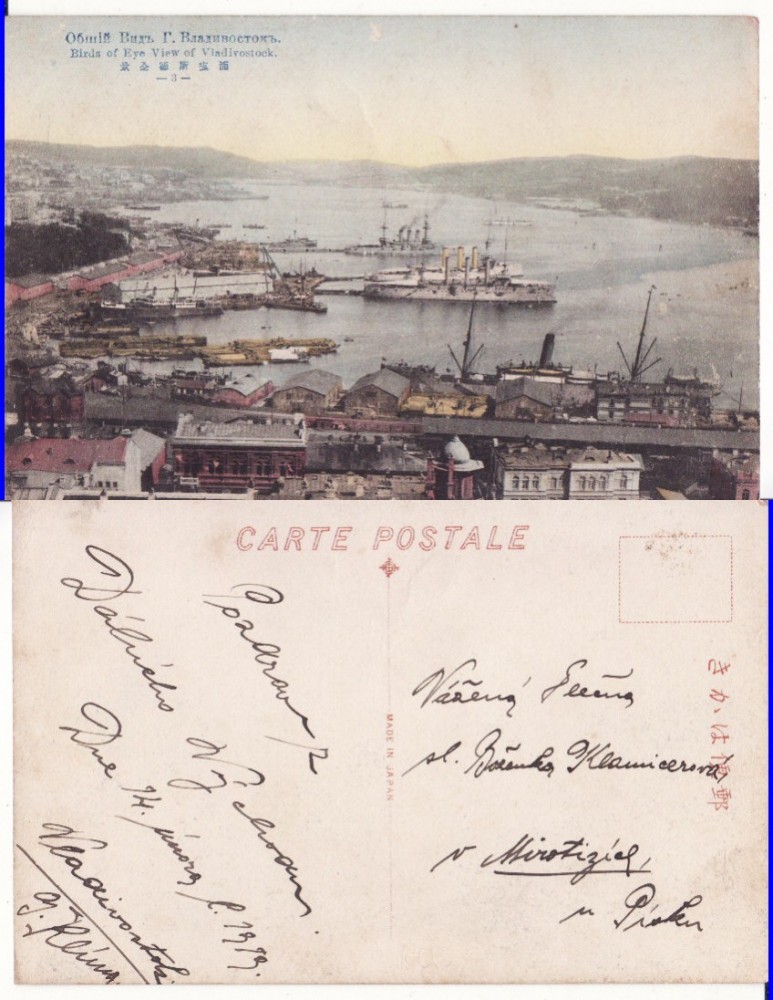 Общій Видъ Г. Владивостокъ.
Birds of Eye View of Vladivostock.
景全斯塩浦
— 3 —
CARTE POSTALE
MADE IN JAPAN
きかは便郵
Pozdrav z
Dálného Východu.
Dne 14. února l. 1919.
Vladivostok.
J. Klíma.
Vážená Slečna
sl. Boženka Klamicerová
v Miroticích,
u Písku